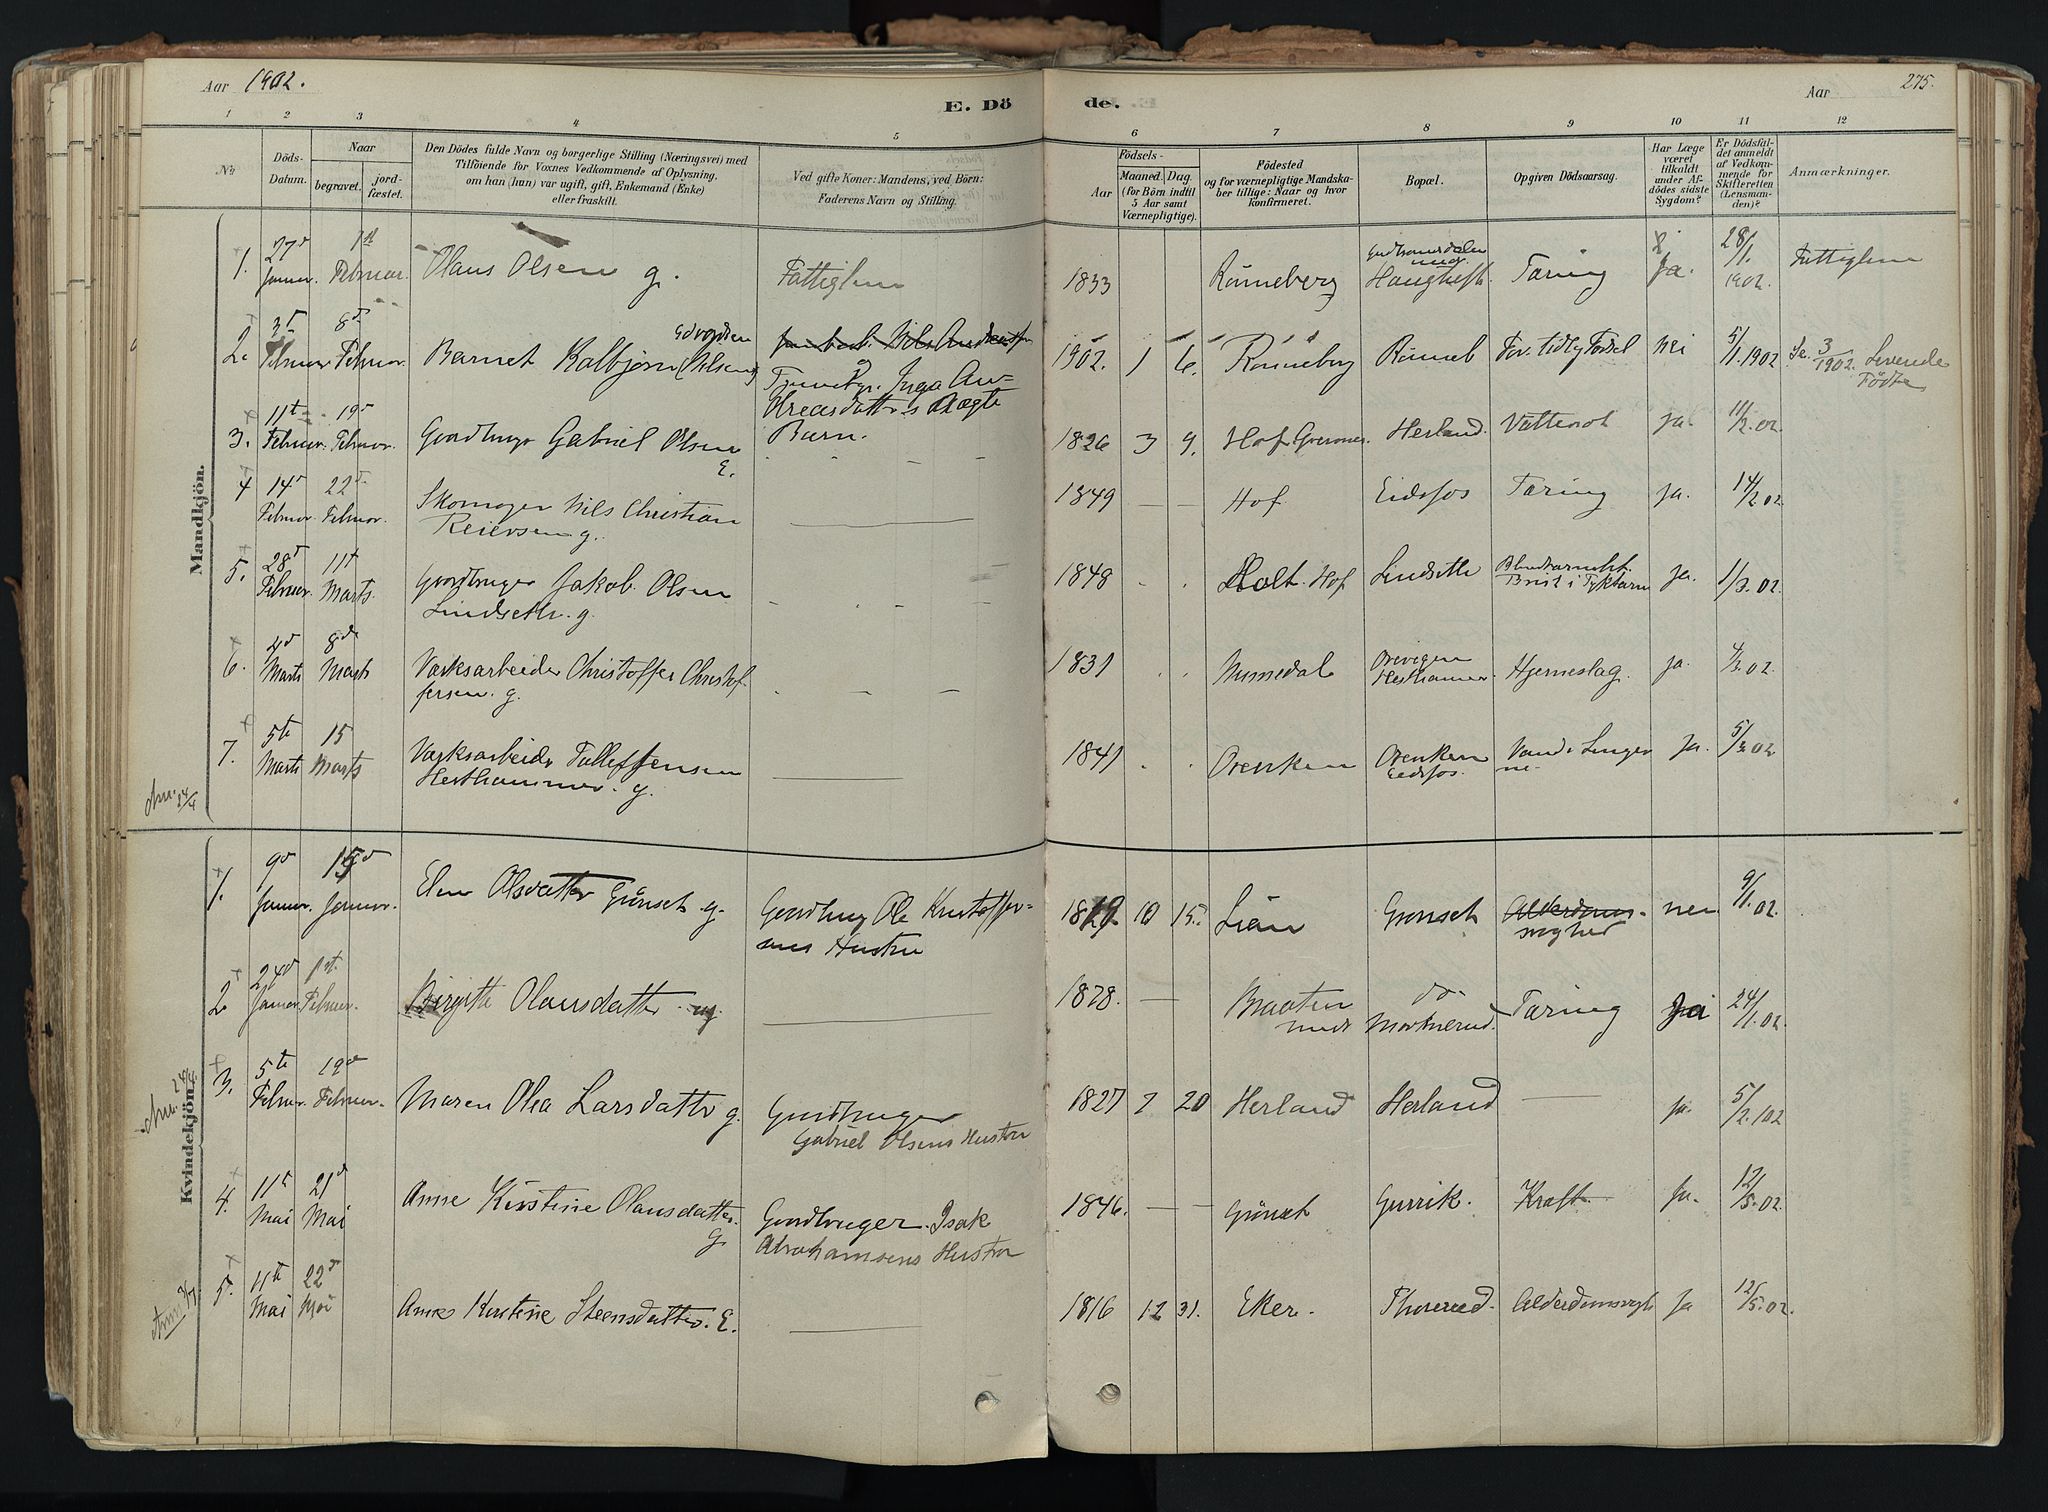 Aar 1902.
E. Dö de.
Aar
275.
1 2 3 4 5 6 7 8 9 10 11 12
No.
Döds-
Datum.
Naar
begravet.
jord-
fæstet.
Den Dödes fulde Navn og borgerlige Stilling (Næringsvei) med
Tilföiende for Voxnes Vedkommende af Oplysning,
om han (hun) var ugift, gift, Enkemand (Enke)
eller fraskilt.
Ved gifte Koner: Mandens, ved Börn:
Faderens Navn og Stilling.
Födsels-
Aar
Maaned. Dag.
(for Börn indtil
5 Aar samt
Værnepligtige).
Födested
og for værnepligtige Mandska-
ber tillige: Naar og hvor
konfirmeret.
Bopæl.
Opgiven Dödsaarsag.
Har Læge
været
tilkaldt
under Af-
dödes sidste
Sygdom?
Er Dödsfal-
det anmeldt
af Vedkom-
mende for
Skifteretten
(Lensman-
den)?
Anmærkninger.
Mandkjön.
1. 27d Januar. 1st Februar. Olaus Olsen g. Fattiglem 1833 Rönneberg Tæring Ja. 28/1 1902. Fattiglem
2. 3d Februar 8d Februar. Barnet Kolbjørn (Nilsen) Edvardsen
Inga An-
dreasdatters uægte
Barn.
1902. 1 6. Rönneberg Rönneb For tidlig Födsel nei 5/1.1902 Se 3/1902. Levende
Födte
3. 11t Februar. 19d Februar. Gaardbruger Gabriel Olsen
E. 1826 3 9. Hof Herland. Vattersot ja. 11/2.02.
4 14d Februar. 22d Februar. Skomager Nils Christian
Reiersen g. 1849 — — Hof Eidsfos Tæring ja. 14/2 02.
5. 28d Februar. 11t Marts. Gaardbruger Jakob Olsen
Lindseth. g. 1848 Holt. Hof Lindseth ja. 1/3.02.
6. 4d Marts 8de Marts Værksarbeider Christoffer Christof-
fersen. g. 1831 Numedal Hjerneslag. ja. 4/3.02.
7. 5te Marts 15 Marts Værksarbeider Tollef Jensen
Hesthammer. g. 1841 Orenken Orenken
Eidsfos. Vand i Lunger-
ne. Ja. 5/3.02
Anm. 24/4
Kvindekjön.
1. 9d Januar. 15d Januar. Olsdatter Grönset g. Gaardbrug Ole Kristoffer-
sens Hustru 1829. 10 15. Liån Grønset Alderdoms-
svaghed nei 9/1.02.
2 24d Januar. 1st. Februar. Birgitte Olausdatter ug. 1878. — do Tæring Ja 24/1.02.
3. 5te Februar. 12d Februar. Maren Olea Larsdatter g. Gaardbruger
Gabriel Olsens Hustru 1827 7 20 Herland Herland — ja. 5/2.102
Anm. 24/4
4. 11te Mai 21d Mai Anne Kirstine Olausdatter.
g. Gaardbruger Isak
Abrahamsens Hustru 1846. — — Grönset Gurrik. Kræft Ja. 12/5.02.
5. 11te Mai 22d Mai Anne Kirstine Steensdatter. E. 1816 12 31. Eker. Thorerød. Alderdomssvagh Ja 12/5.02.